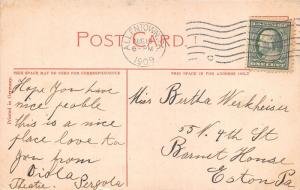 ALLENTOWN, PA
6 - PM
1909
POST CARD
THIS SPACE MAY BE USED FOR CORRESPONDENCE
THIS SPACE IS FOR ADDRESS ONLY
Printed in Germany.
Hope You have
nice people
this is a nice
place love to
you from
Theatre. Pergola
Miss Bertha Werkheiser
55 N. 4th St
Barnet House
Eston Pa